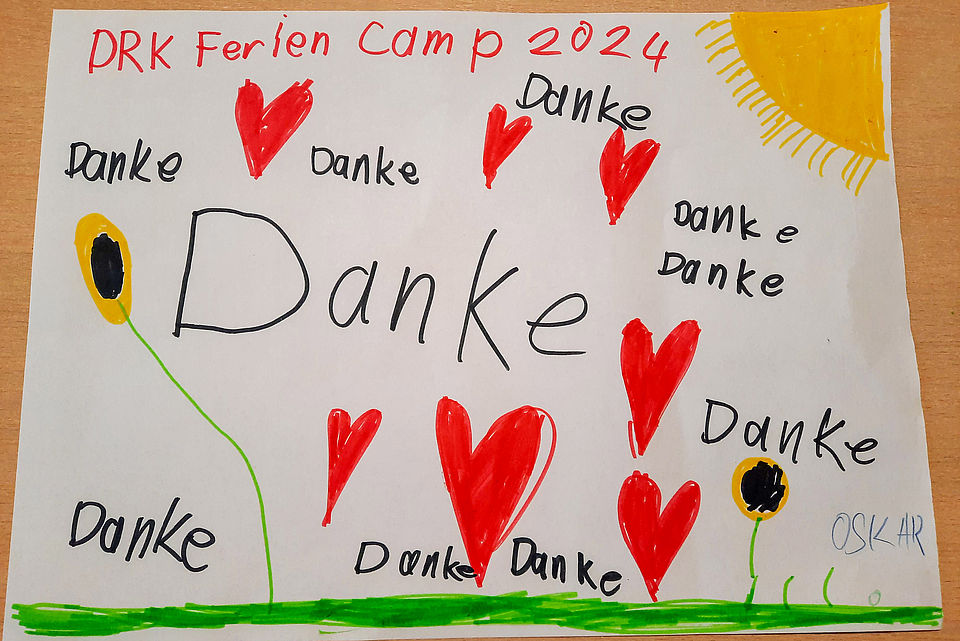 DRK Ferien Camp 2024
Danke
Danke
Danke
Danke
Danke
Danke
Danke
Danke
OSKAR
Danke
Danke
Danke